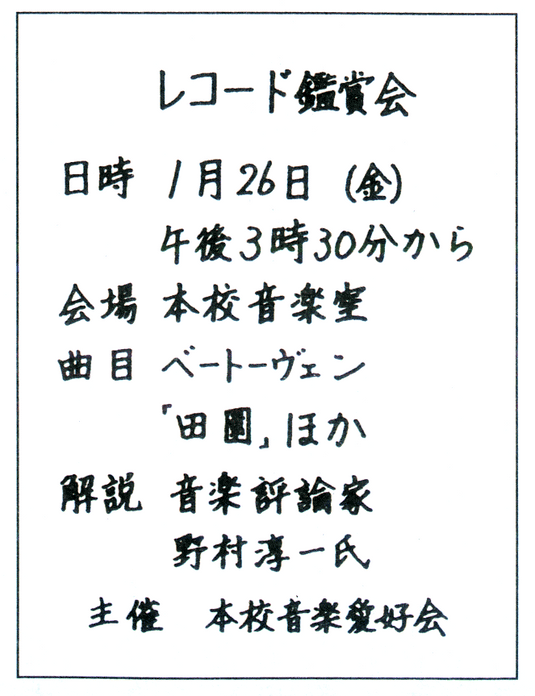 レコード鑑賞会
日時 1月26日 (金)
午後3時30分から
会場 本校音楽室
曲目 ベートーヴェン
「田園」ほか
解説 音楽評論家
野村淳一氏
主催 本校音楽愛好会